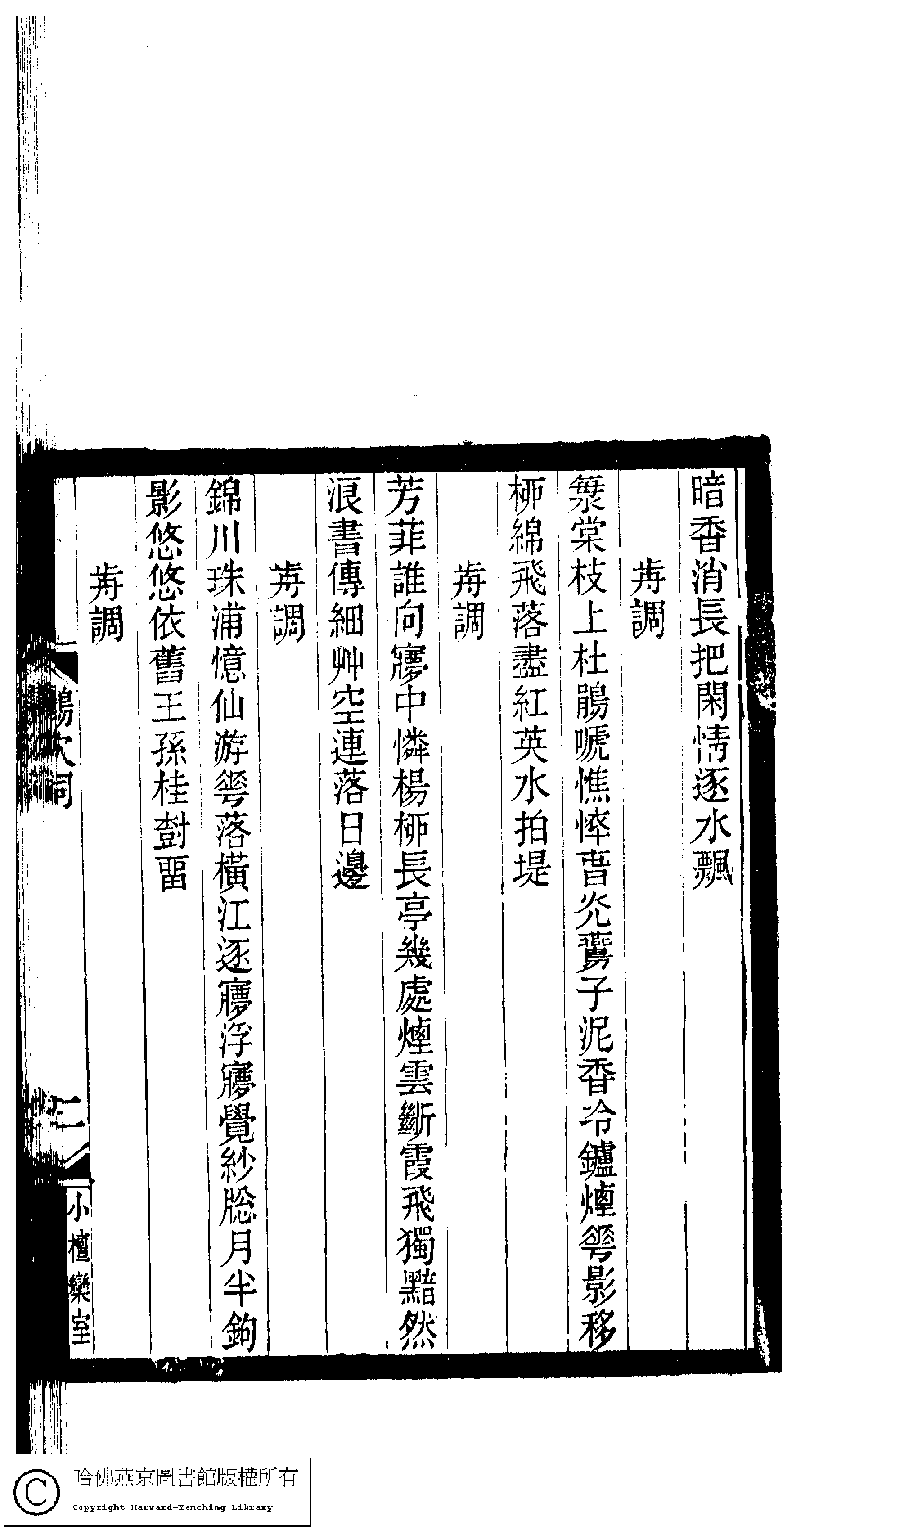 暗香消長把閑情逐水飄
歬調
棃棠枝上杜鵑嗁憔悴萅炗鷰子泥香冷鑪煙蕚影移
桺綿飛落盡紅英水拍堤
歬調
芳菲誰向㝱中憐楊桺長亭幾處煙雲斷霞飛獨黯然
浪書傳細艸空連落日邊
歬調
錦川珠浦憶仙游蕚落橫江逐㝱浮㝱覺紗牎月半鉤
影悠悠依舊王孫桂尌畱
歬調
詞
二
小檀欒室
哈佛燕京圖書館版權所有
Copyright Harvard-Yenching Library